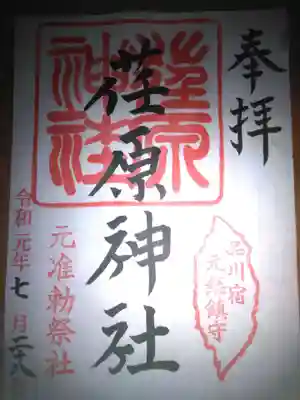 奉拝
荏原神社
荏原
神社
品川宿
元総鎮守
元准勅祭社
令和元年七月二八